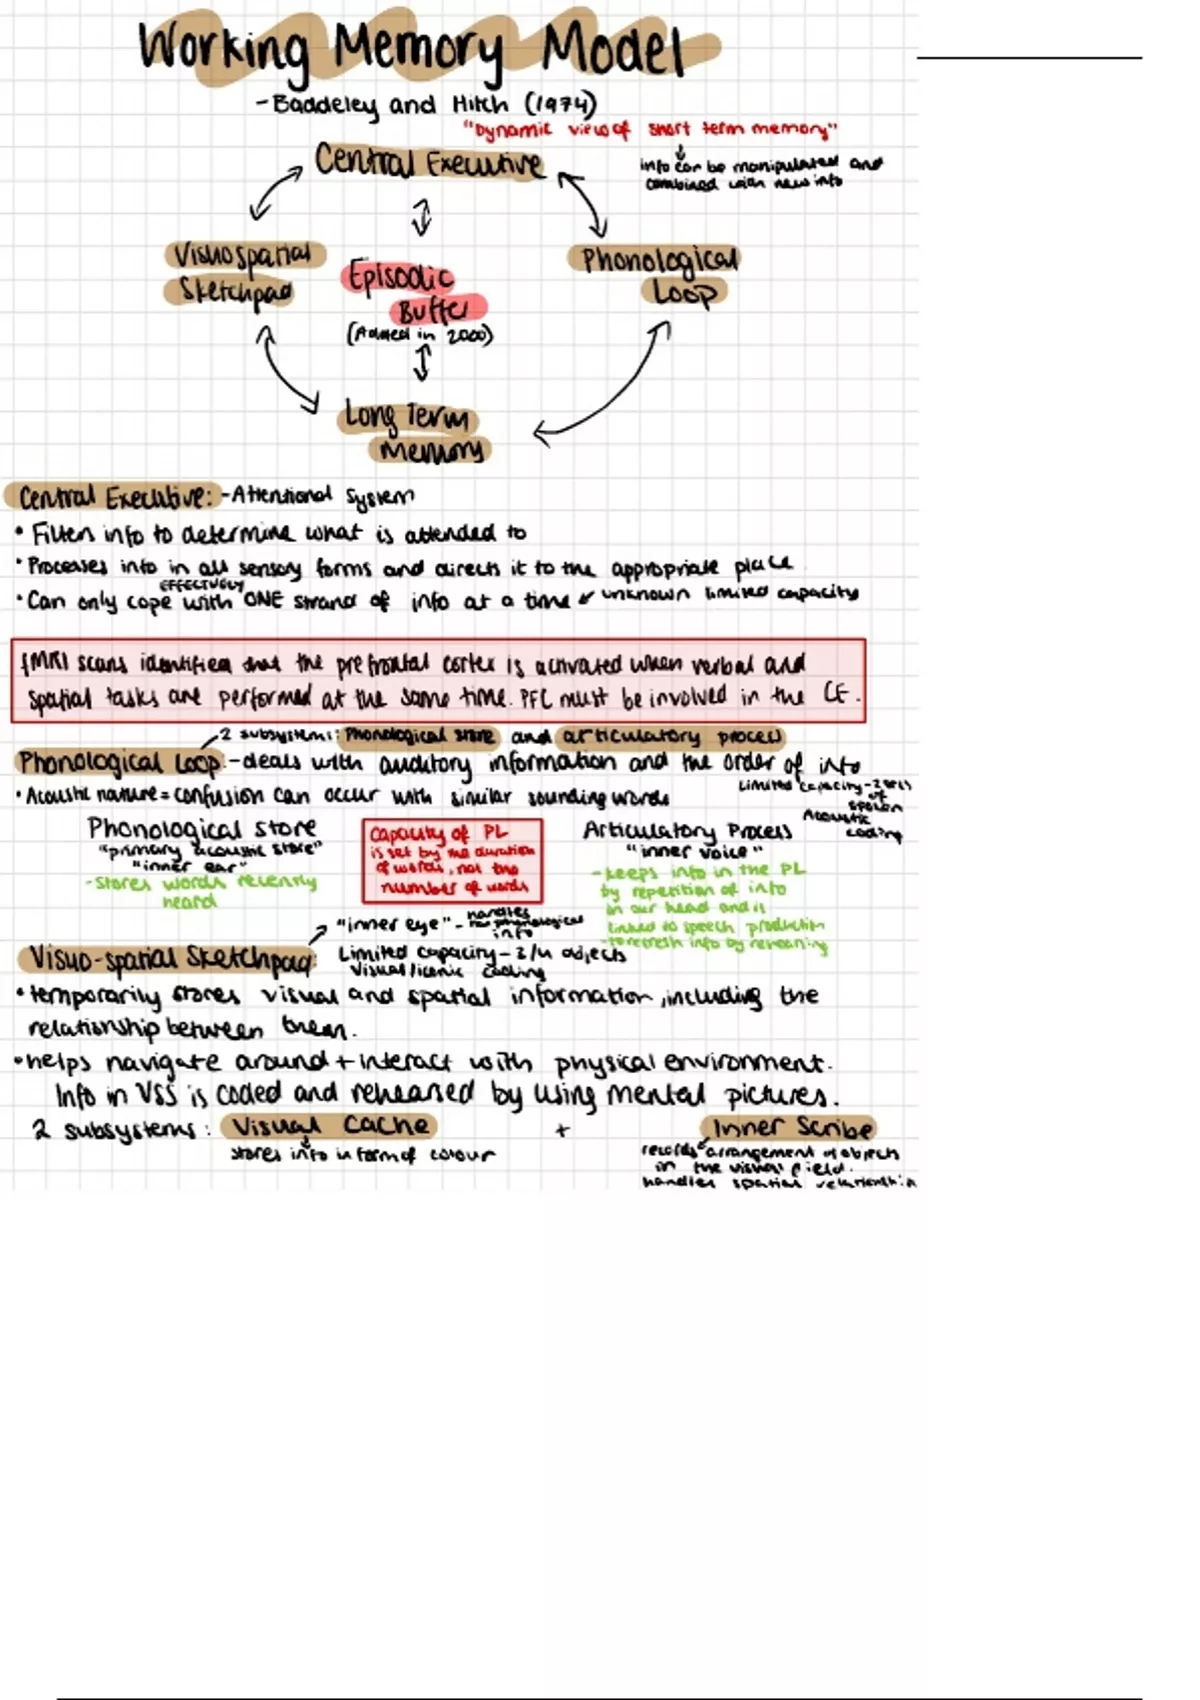 Working Memory Model
- Baddeley and Hitch (1974)
"Dynamic view of short term memory"
info can be manipulated and
combined with new info
Central Executive
Visuospatial
Sketchpad
Episodic
Buffer
(Added in 2000)
Phonological
Loop
Long Term
Memory
Central Executive: - Attentional System
• Filters info to determine what is attended to
• Processes info in all sensory forms and directs it to the appropriate place
EFFECTIVELY
• Can only cope with ONE strand of info at a time unknown limited capacity
fMRI scans identified that the prefrontal cortex is activated when verbal and
spatial tasks are performed at the same time. PFC must be involved in the CE.
2 subsystems: Phonological store and articulatory process
Phonological Loop: - deals with auditory information and the order of info
Limited capacity - 2 secs
of
spoken
Acoustic
coding
• Acoustic nature = confusion can occur with similar sounding words
Phonological store
"primary acoustic store"
"inner ear"
- Stores words recently
heard
Capacity of PL
is set by the duration
of words, not the
number of words
Articulatory Process
"inner voice"
- keeps info in the PL
by repetition of info
in our head and is
linked to speech production
- to refresh info by rehearsing
"inner eye" - handles
non phonological
info
Visuo-spatial Sketchpad:
Limited capacity - 3/4 objects
Visual/iconic coding
• temporarily stores visual and spatial information, including the
relationship between them.
• helps navigate around + interact with physical environment.
Info in VSS is coded and rehearsed by using mental pictures.
2 subsystems: Visual Cache + Inner Scribe
stores info in form of colour
records arrangement of objects
in the visual field.
handles spatial relationship